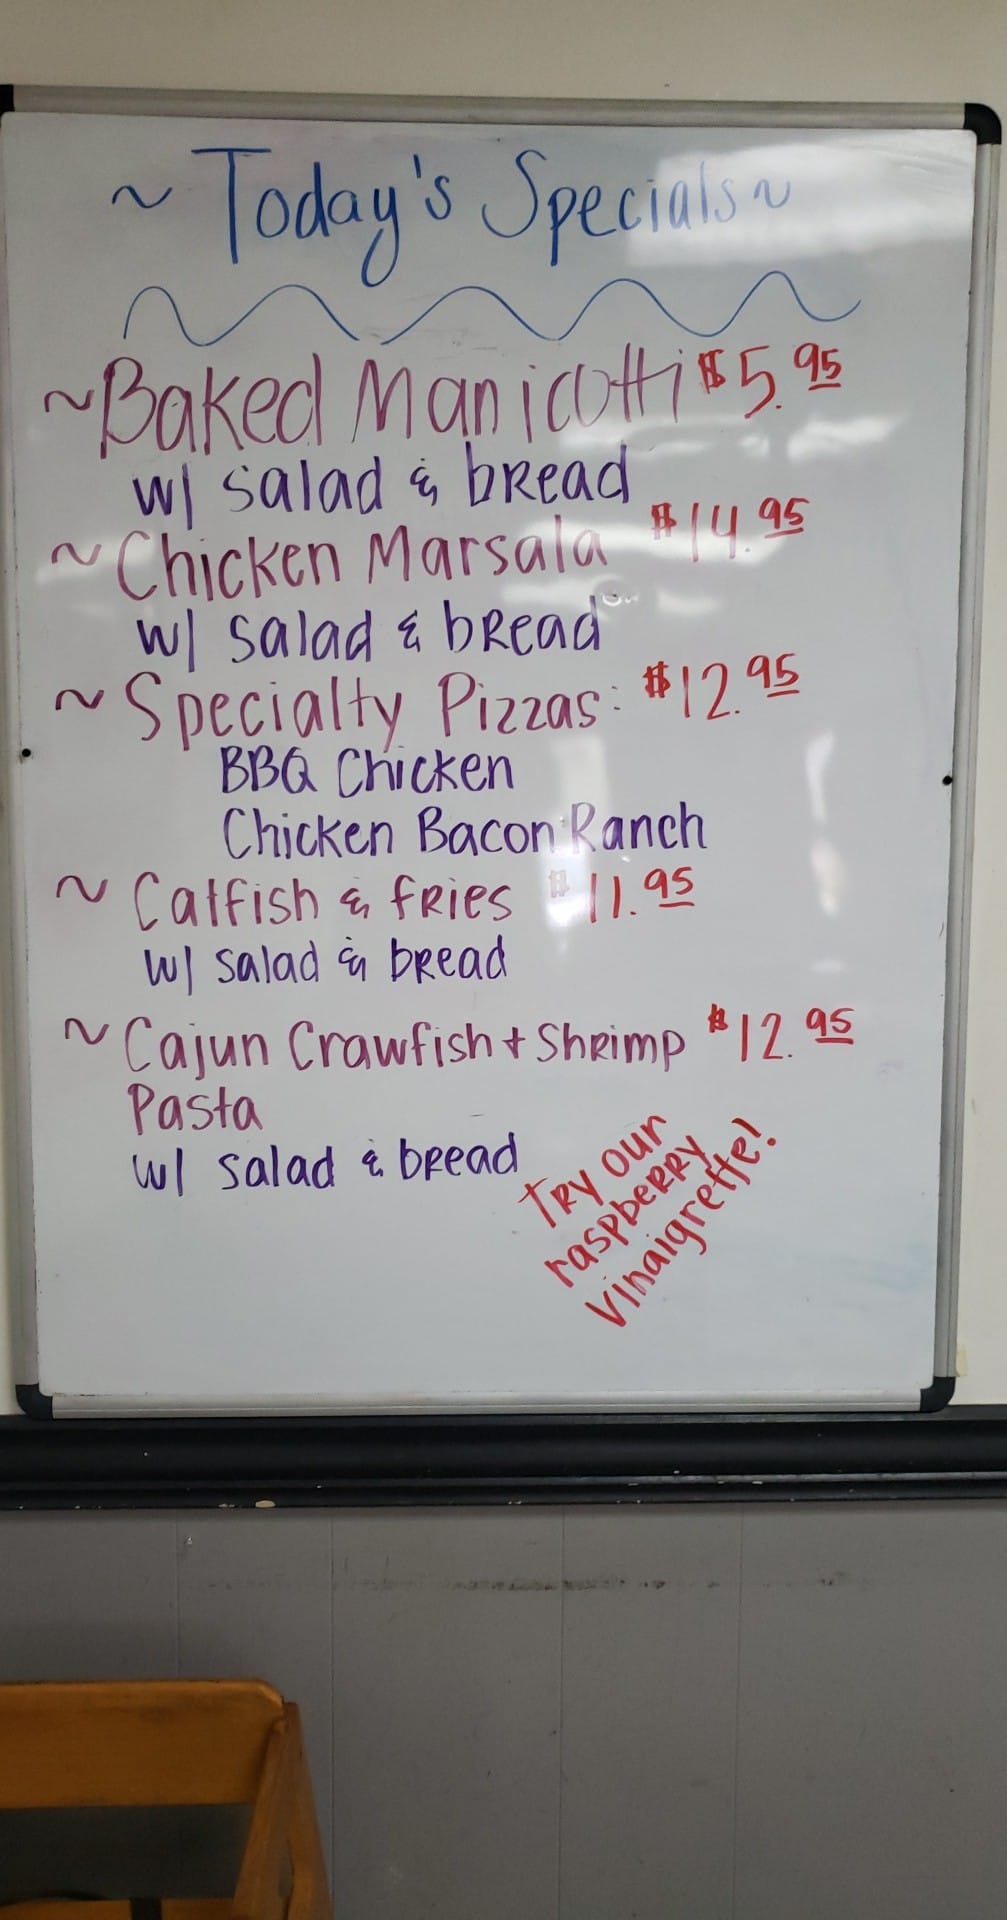 ~ Today's Specials ~
~ Baked Manicotti $5.95
w/ salad & bread
~ Chicken Marsala $14.95
w/ salad & bread
~ Specialty Pizzas: $12.95
BBQ Chicken
Chicken Bacon Ranch
~ Catfish & fries $11.95
w/ salad & bread
~ Cajun Crawfish + Shrimp $12.95
Pasta
w/ salad & bread
Try our
raspberry
vinaigrette!